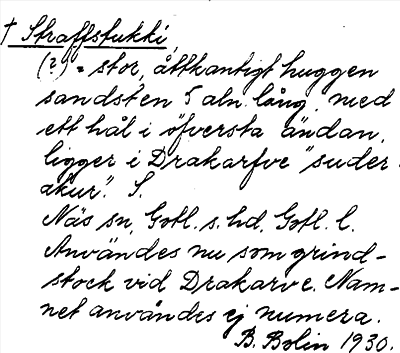 † Straffstukki,
(?) = stor, åttkantigt huggen
sandsten 5 aln lång, med
ett hål i öfversta ändan,
ligger i Drakarfve "suder-
akur". S.
Näs sn, Gotl. s. hd, Gotl. l.
Användes nu som grind-
stock vid Drakarve. Nam-
net användes ej numera.
B. Bolin 1930.